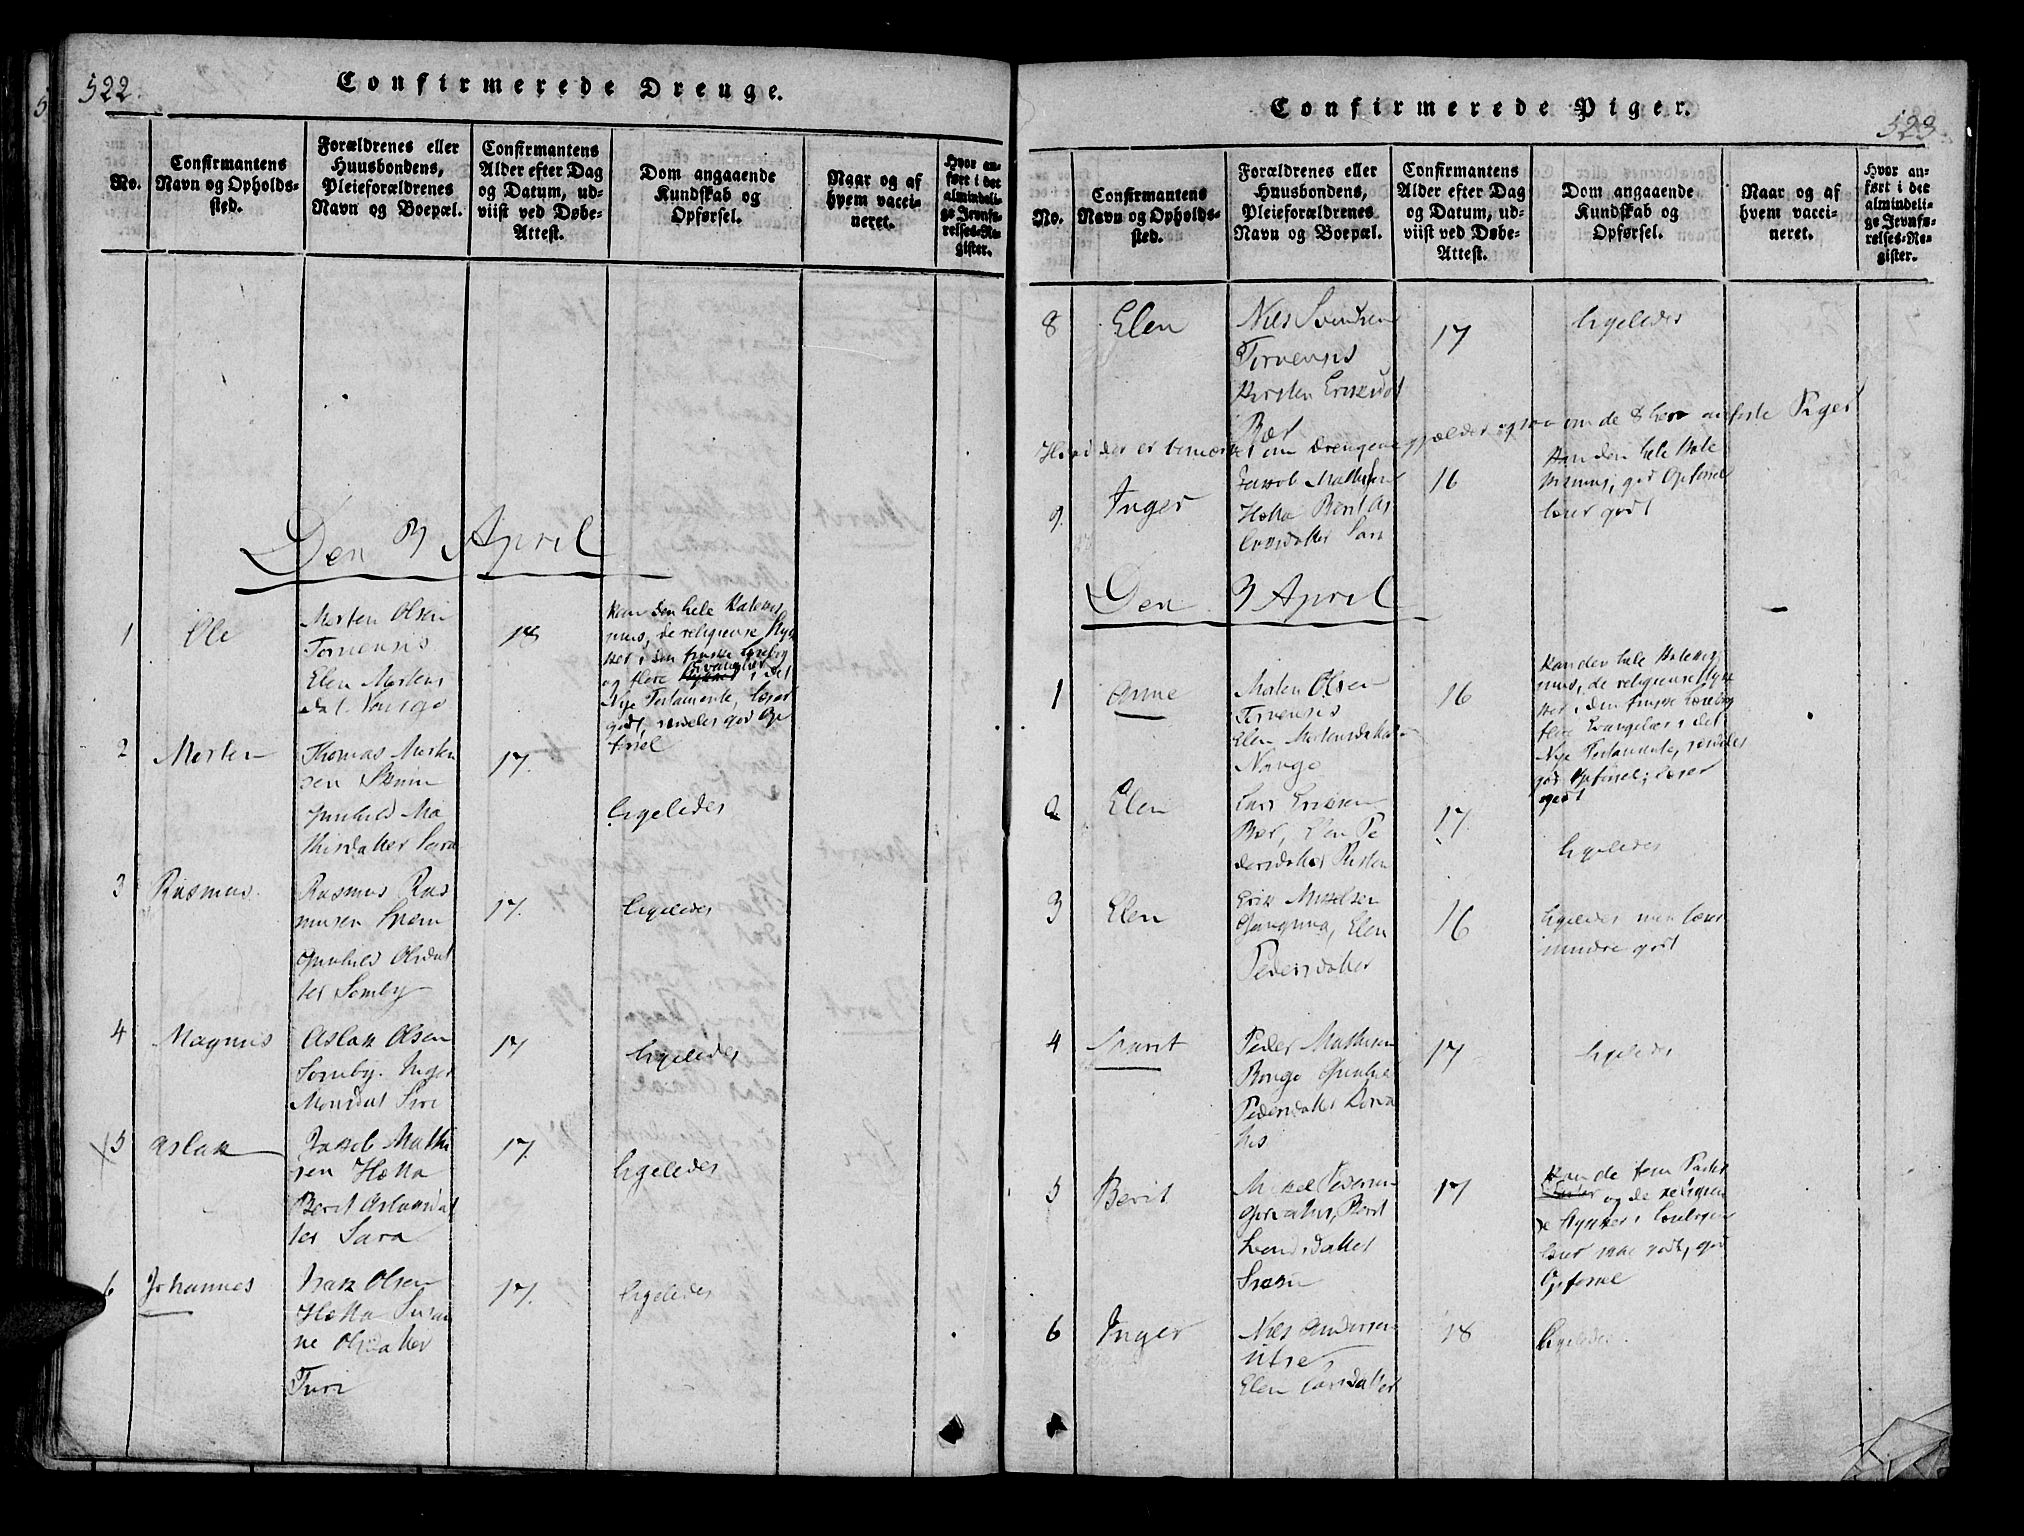 522.
Confirmerede Drenge.
No.
Confirmantens
Navn og Opholds-
sted.
Forældrenes eller
Huusbondens,
Pleieforældrenes
Navn og Boepæl.
Confirmantens
Alder efter Dag
og Datum, ud-
viist ved Døbe-
Attest.
Dom angaaende
Kundskab og
Opførsel.
Naar og af
hvem vacci-
neret.
Hvor an-
ført i det
almindeli-
ge Jevnfø-
relses-Re-
gister.
Den 3 April
1
Ole
Morten Olsen
Tornensis
Elen Mortens
dat. Nango
18
Kan den hele Kateкis
mus, de religieuse Styk
ker i den
og flere Evangelier i det
Nye Testamente, læser
godt, særdeles god Op
førsel
2
Morten
Thomas Morten
sen Skum
Gunhild Ma
thisdatter Sara
17.
ligeledes
3
Rasmus.
Rasmus Ras
musen Spein
Gunhild Olsdat
ter Somby
17.
ligeledes
4
Magnus
Aslak Olsen
Somby. Inger
Monsdat Siri
17
ligeledes
5
Aslak
Mathi
sen Hætta
Berit Aslaksdat
ter Sara
17.
ligeledes
6
Johannes
Isak Olsen
Hætta Susan
ne Olsdatter
Turi
17.
ligeledes
523.
Confirmerede Piger.
No.
Confirmantens
Navn og Opholds-
sted.
Forældrenes eller
Huusbondens,
Pleieforældrenes
Navn og Boepæl.
Confirmantens
Alder efter Dag
og Datum, ud-
viist ved Døbe-
Attest.
Dom angaaende
Kundskab og
Opførsel.
Naar og af
hvem vacci-
neret.
Hvor an-
ført i det
almindeli-
ge Jevnfø-
relses-Re-
gister.
8
Elen
Nils Svendsen
Tornensis
Kirsten Eriksdat
Bær
17
ligeledes
Hvad der er bemærket om Drengene gjælder ogsaa om de 8 her anførte Piger
9.
Inger
Jacob Mathisen
Hætta Berit As
laksdatter Sara
16
Kan den hele Kate
kismus, god Opførsel
læser godt
Den 3 April
1
Anne
Morten Olsen
Tornensis
Elen Mortensdatter
Nango
16
Kan den hele Katekis
mus, de religieuse Styk
ker i den
flere Evangelier i det
Nye Testamente, særdeles
god Opførsel; læser
godt
2
Elen
Lars Eriksen
Bær, Elen Pe
dersdatter Kirsten
17.
ligeledes
3
Elen
Erik Mikkelsen
Elen
Pedersdatter
16
ligeledes men læser
mindre godt
4
Marit
Peder Mathisen
Bongo Gunhil
Pedersdatter
17
ligeledes
5
Berit
Mikkel Pedersen
Berit
Svendsdatter
17
Kan de fem Parter
og de religieu
se Stykker i Læsebogen
læser godt, god
Opførsel
6
Inger
Nils Andersen
Utse
Elen Larsdatter
18
ligeledes.